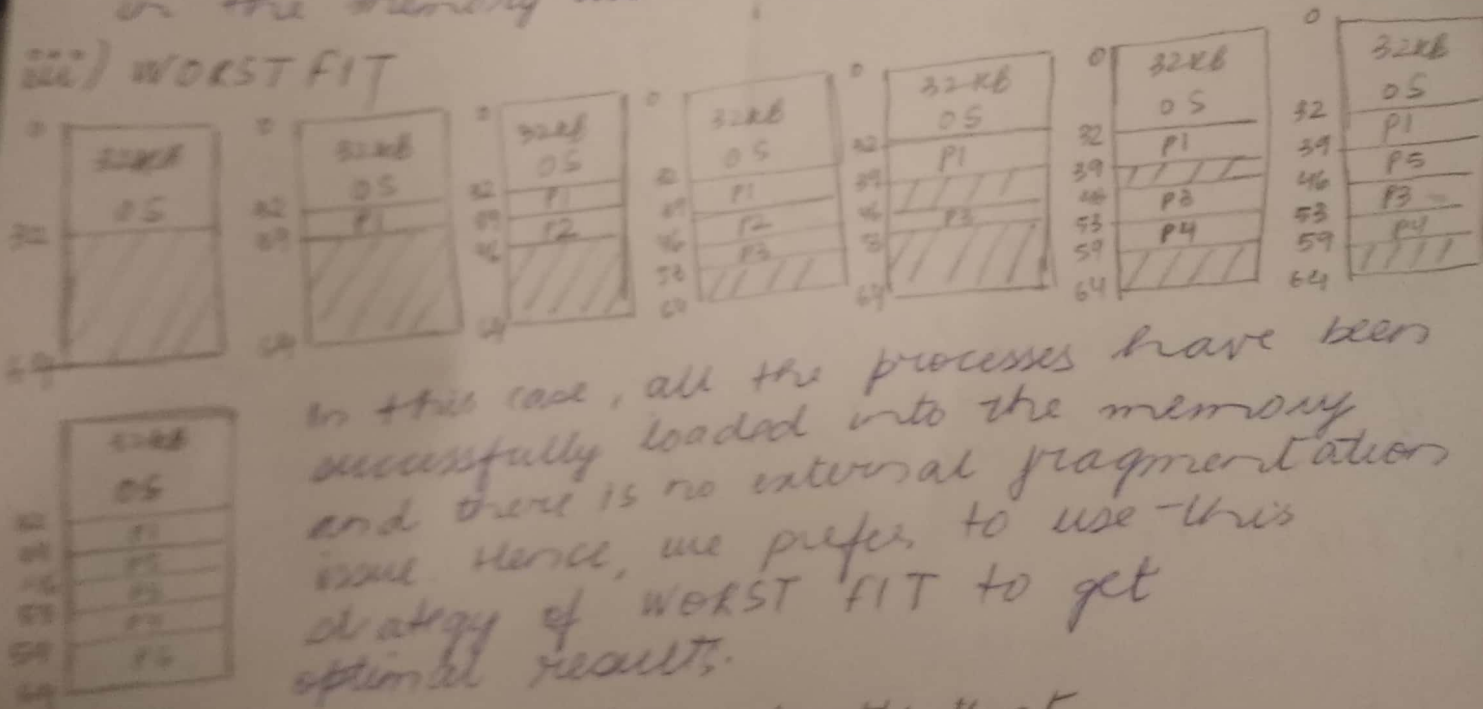 in the memory
iii) WORST FIT
0 32KB OS 32 64
0 32KB OS 32 P1 39 64
0 32KB OS 32 P1 39 P2 46 64
0 32KB OS 32 P1 39 P2 46 P3 53 64
0 32KB OS 32 P1 39 46 P3 53 64
0 32KB OS 32 P1 39 46 P3 53 P4 59 64
0 32KB OS 32 P1 39 P5 46 P3 53 P4 59 64
32KB OS 32 P1 P5 46 P3 53 P4 59 64
In this case, all the processes have been
successfully loaded into the memory
and there is no external fragmentation
issue. Hence, we prefer to use this
strategy of WORST FIT to get
optimal results.